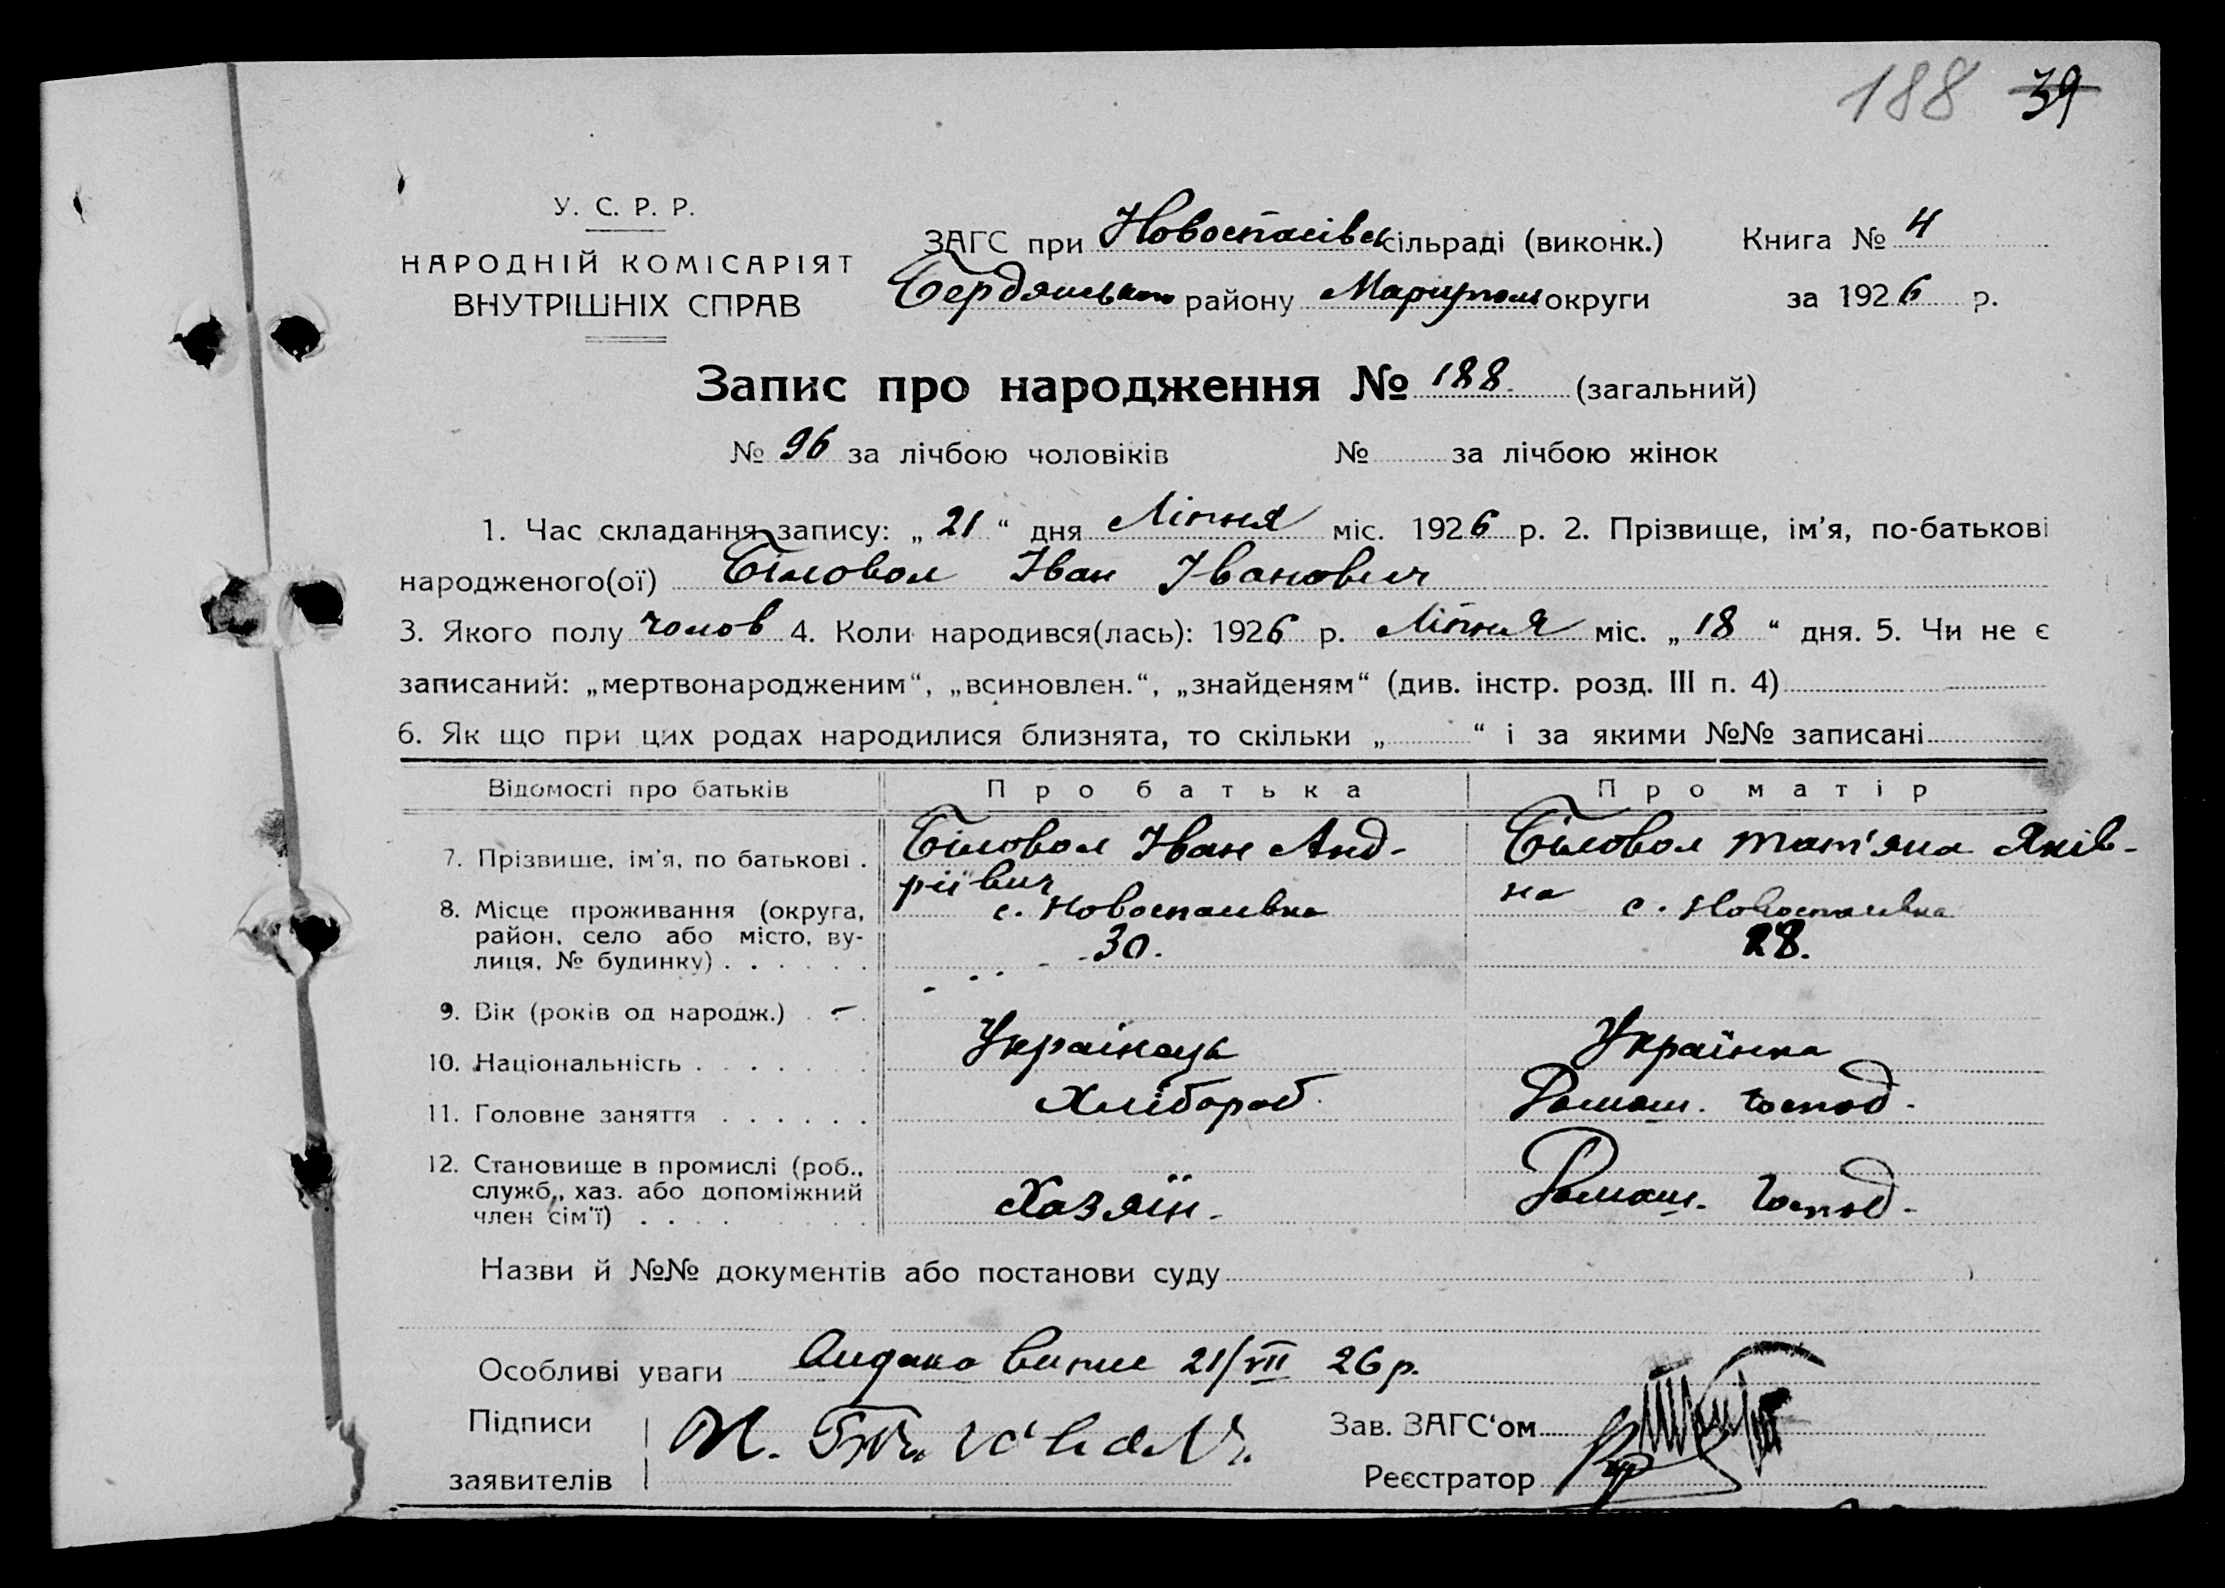 188 39
У. С. Р. Р.
НАРОДНІЙ КОМІСАРІЯТ
ВНУТРІШНІХ СПРАВ
ЗАГС при Новоспасівск сільраді (виконк.) Книга № 4
Бердянського району Маріупол округи за 1926 р.
Запис про народження № 188. (загальний)
№ 96 за лічбою чоловіків № за лічбою жінок
1. Час складання запису: „ 21 “ дня Ліпня міс. 1926 р. 2. Прізвище, ім’я, по-батькові
народженого(ої) Біловол Іван Іванович
3. Якого полу чолов 4. Коли народився(лась): 1926 р. Ліпня міс. „ 18 “ дня. 5. Чи не є
записаний: „мертвонародженим“, „всиновлен.“, „знайденям“ (див. інстр. розд. III п. 4)
6. Як що при цих родах народилися близнята, то скільки „ “ і за якими №№ записані
Відомості про батьків Про батька Про матір
7. Прізвище, ім’я, по батькові . Біловол Іван Анд-
ріївич
Біловол Тат'яна Яків-
на
8. Місце проживання (округа,
район, село або місто, ву-
лиця, № будинку) . . . . . .
с. Новоспасивка
с. Новоспасивка
9. Вік (років од народж.) . . .
30.
28.
10. Національність . . . . . . . Українець Українка
11. Головне заняття . . . . . . Хлібороб. Домаш. господ.
12. Становище в промислі (роб.,
служб., хаз. або допоміжний
член сім’ї) . . . . . . . . .
Хазяїн.
Домаш. господ.
Назви й №№ документів або постанови суду
Особливі уваги випис 21/VII 26 р.
Підписи
заявителів
Зав. ЗАГС‘ом
Реєстратор